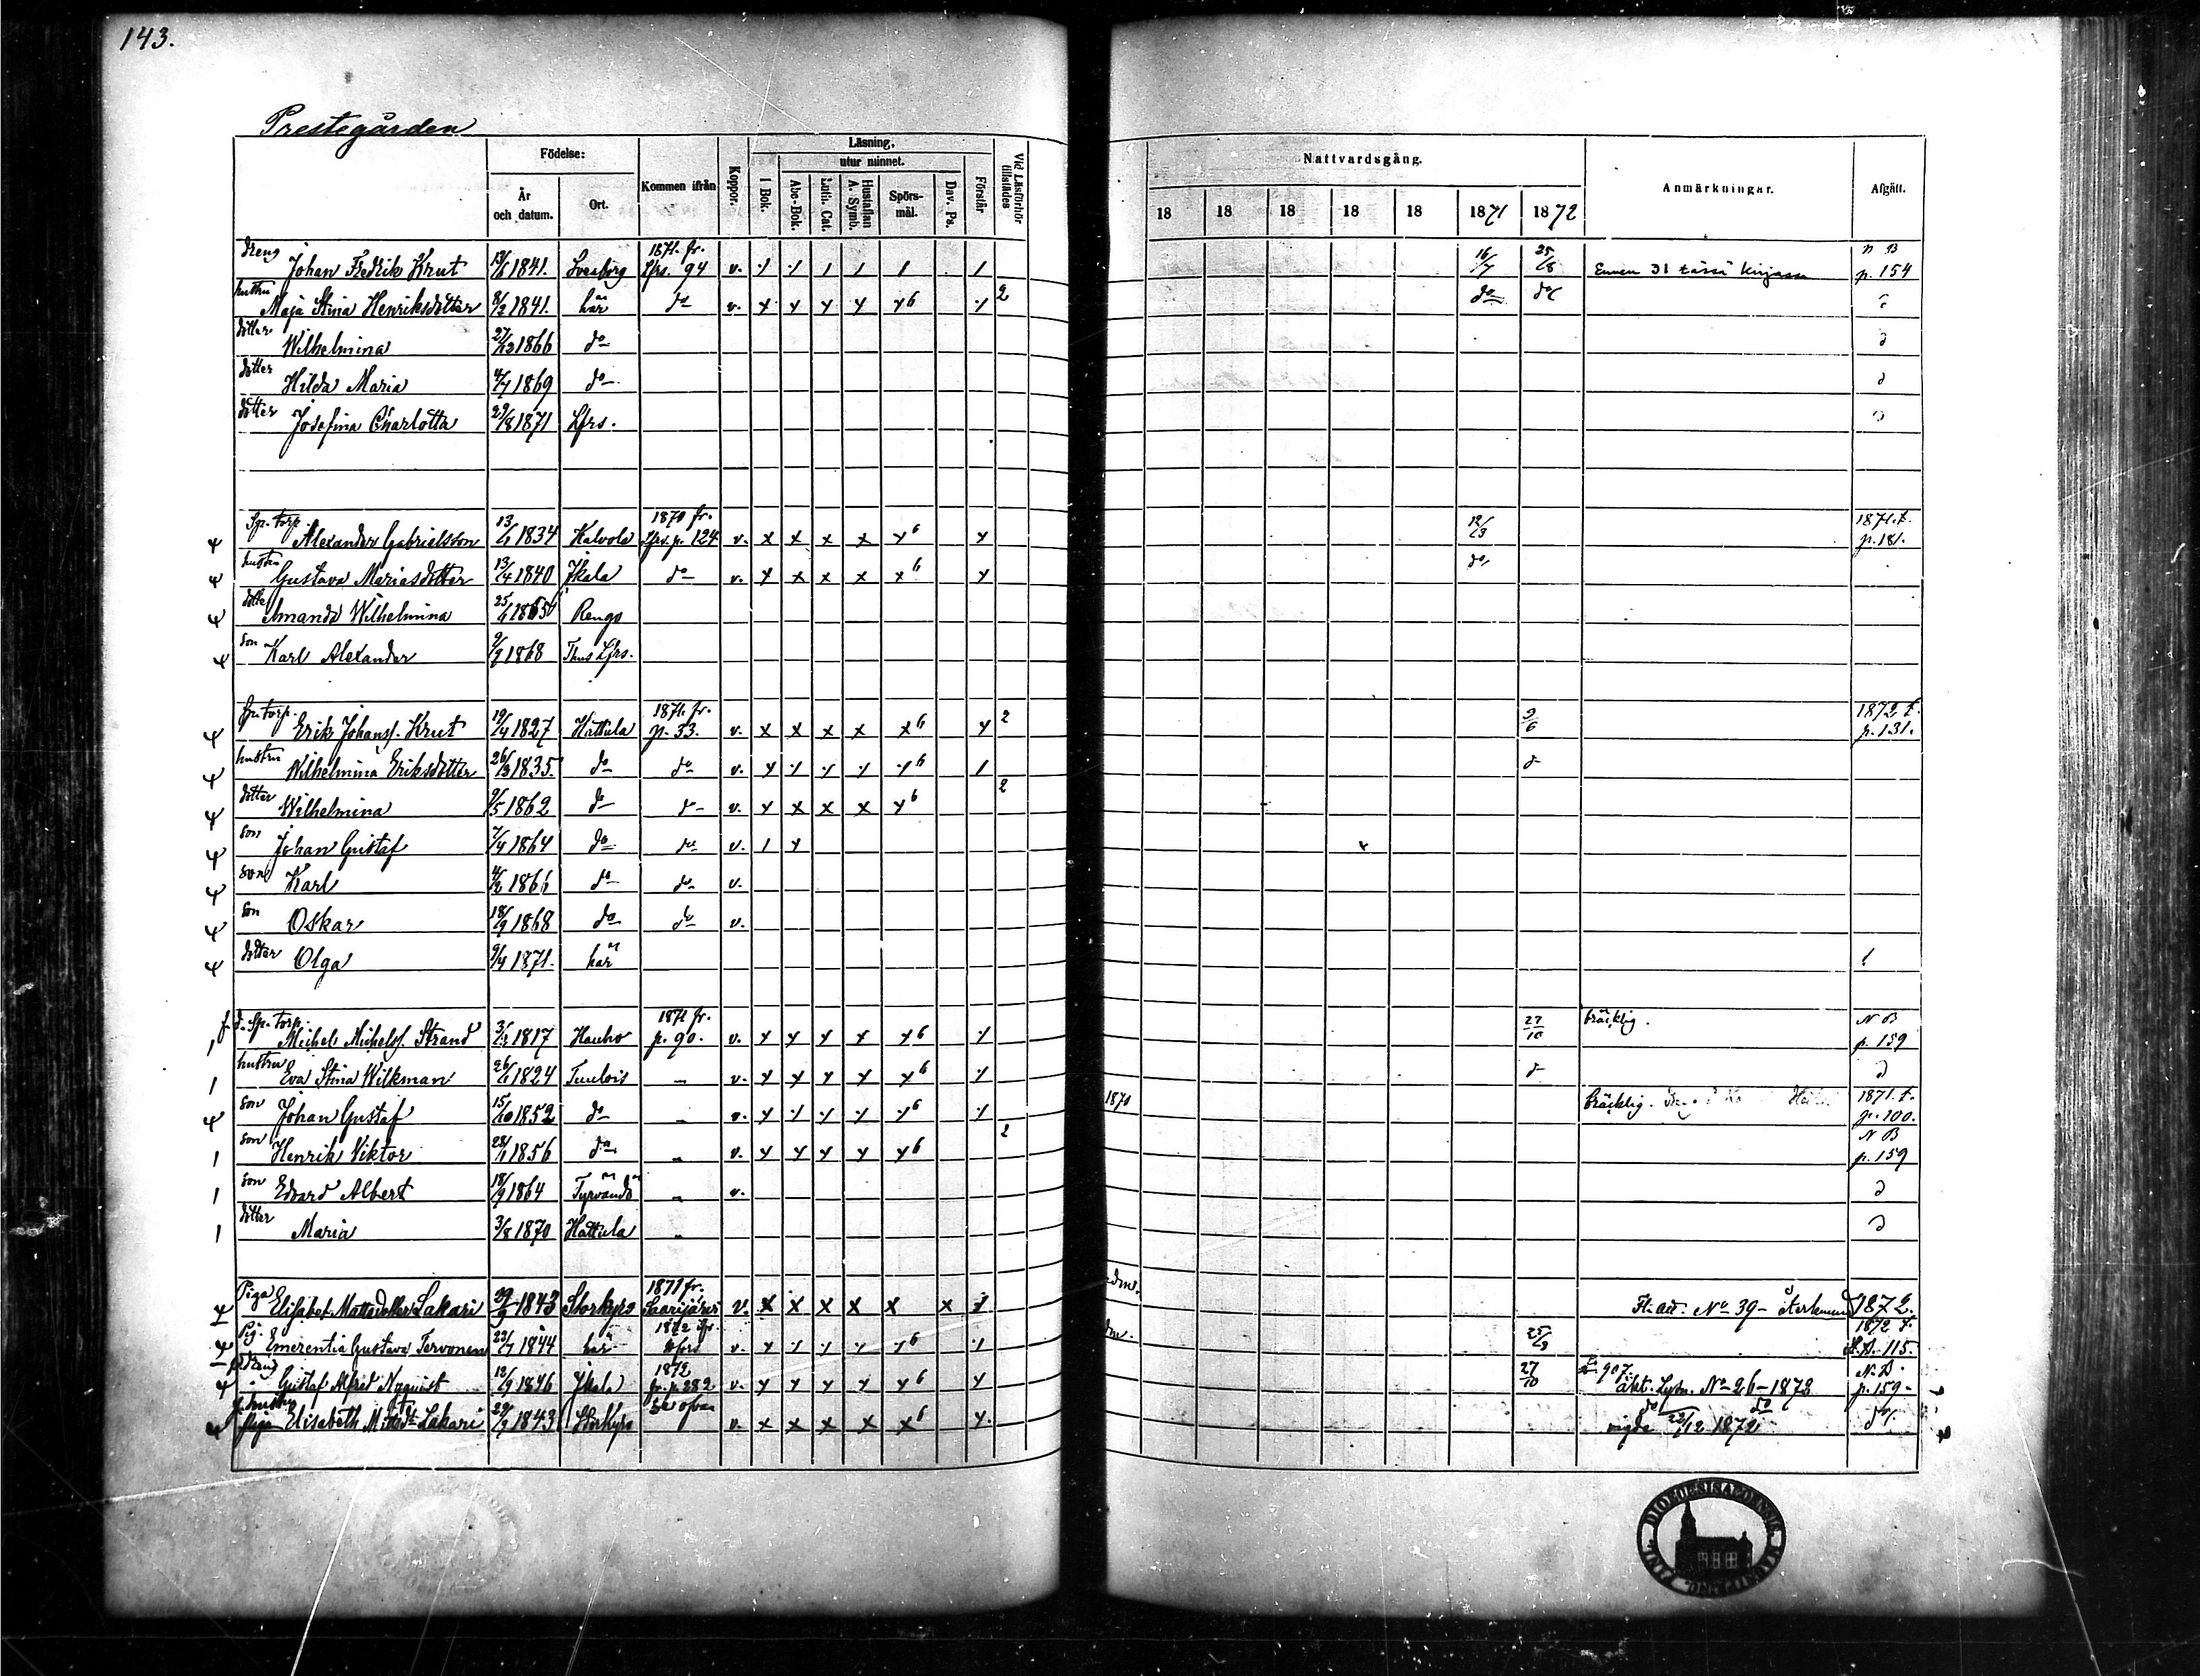 143.
Prestegården
Födelse: Kommen ifrån Koppor. Läsning, utur minnet. Vid Läsförhör tillstädes
År och datum. Ort. I Bok. Abc-Bok. Luth. Cat. Hustaflan A. Symb. Spörsmål. Dav. Ps. Förstår
Nattvardsgång. Anmärkningar. Afgått.
18 18 18 18 18 1871 1872
dreng Johan Fredrik Krut 1841. Sveaborg 1871. fr. Lfrs. 94 v. 16/7 25/8 Ennen 31 tässä kirjassa N B p. 154
hustru Maja Stina Henriksdotter 8/2 1841. här do v. 2 do do
dotter Wilhelmina 27/12 1866 do
dotter Hilda Maria 4/7 1869 do
dotter Josefina Charlotta 29/8 1871 Lfrs.
Sp. torp. Alexander Gabrielsson 1834 Kalvola 1870 fr. Lfrs. p. 124 v. 12/3 1871. t. p. 181.
hustru Gustava Mariasdotter 13/4 1840 Jkala do v. do
dotter Amanda Wilhelmina 1865 Rengo
son Karl Alexander 1868 Thus Lfrs.
Sp. torp. Erik Johanss. Krut 19/4 1827 Hattula 1871. fr. p. 33. v. 2 9/6 1872 t. p. 131.
hustru Wilhelmina Eriksdotter 26/3 1835. do do v.
dotter Wilhelmina 9/5 1862 do do v. 2
son Johan Gustaf 7/4 1864 do do v.
son Karl 4/2 1866 do do v.
son Oskar 18/9 1868 do do v.
dotter Olga 9/4 1871. här
f. d. Sp. torp. Michel Michelss. Strand 1817 Hauho 1871 fr. p. 90. v. 27/10 bräcklig. N B p. 159
hustru Eva Stina Wilkman 1824 Tuulois v.
son Johan Gustaf 15/10 1852 do v. 1870 bräcklig. 1871. t. p. 100.
son Henrik Viktor 1856 do v. 2 N B p. 159
son Edvard Albert 18/9 1864 Tyrvändö v.
dotter Maria 3/8 1870 Hattula
Piga Elisabet Mattsdotter Lakari 1843 Storkyro 1871 fr. Saarijärvi v. adm. Fl. att. No 39 1872.
Pig. Emerentia Gustava Tervonen 1844 här 1872 fr. v. 1872 t. 115.
Dreng Gustaf Alfred Nyqvist 12/9 1846 Jkala 1872 fr. p. 282 v. 27/10 907. äkt. Lysn. No 26-1872 N. B. p. 159
f. hustru Piga Elisabeth Mattsdr Lakari 1843 Storkyro se ofvan v. do do vigde 22/12 1872